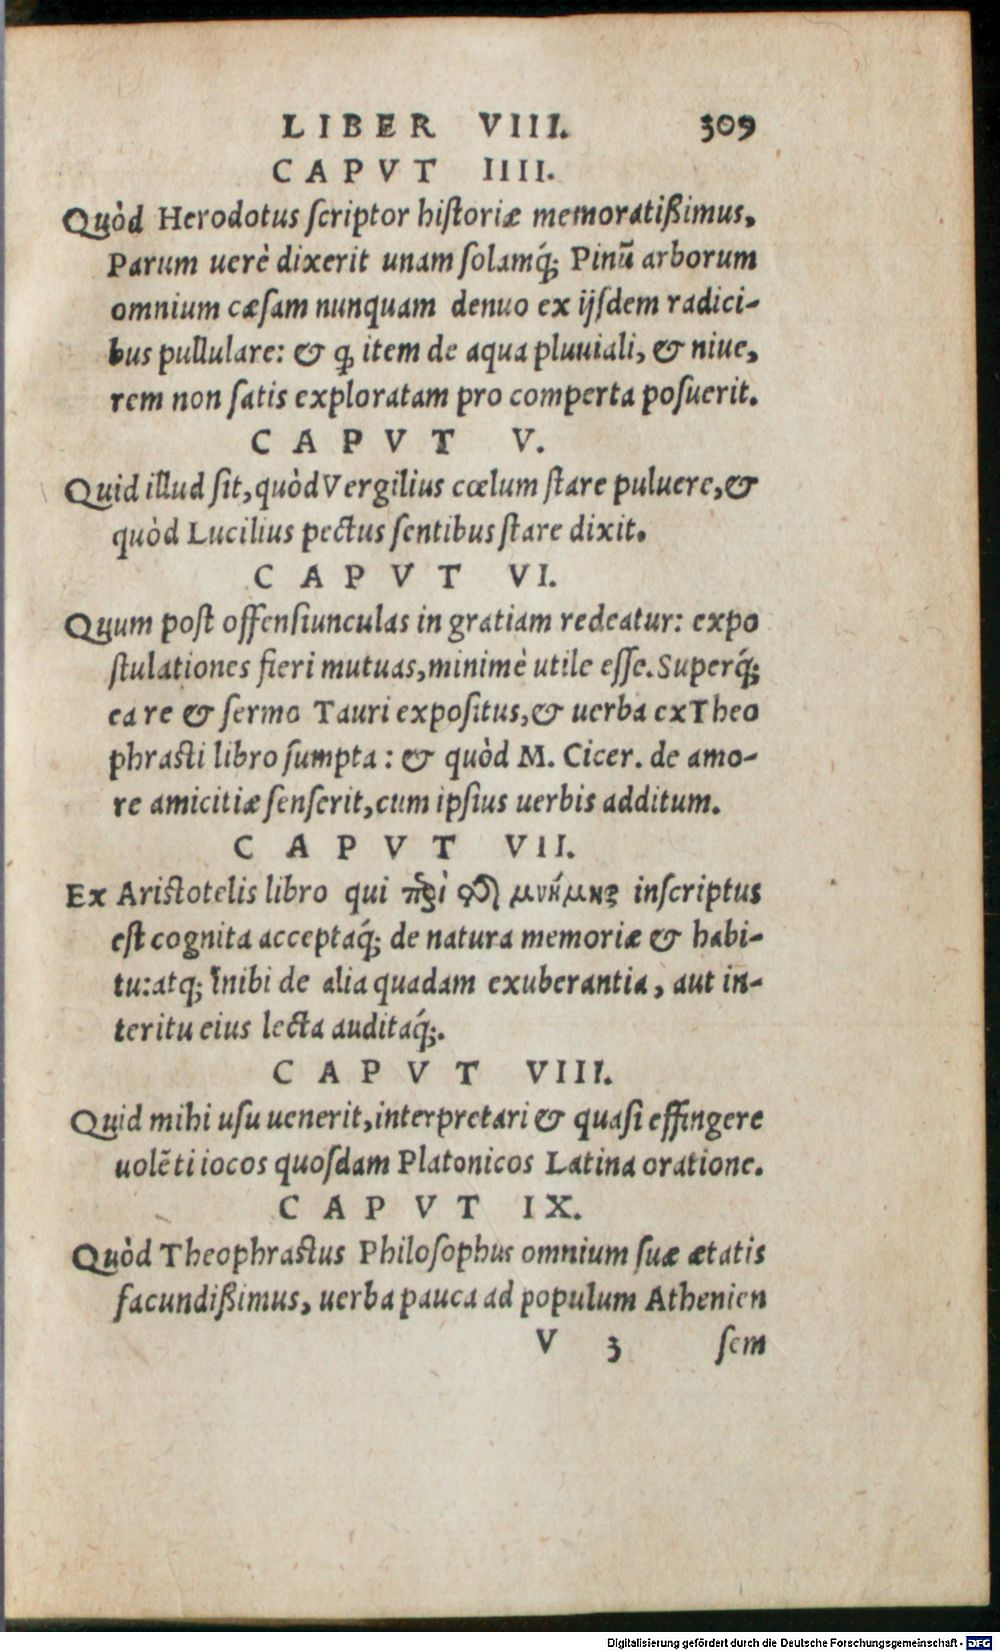 LIBER VIII. 309
CAPVT IIII.
Quòd Herodotus scriptor historiæ memoratißimus,
Parum uerè dixerit unam solamq́; Pinū arborum
omnium cæsam nunquam denuo ex ijsdem radici-
bus pullulare: & ꝙ item de aqua pluuiali, & niue,
rem non satis exploratam pro comperta posuerit.
CAPVT V.
Quid illud sit, quòd Vergilius cœlum stare puluere, &
quòd Lucilius pectus sentibus stare dixit.
CAPVT VI.
Quum post offensiunculas in gratiam redeatur: expo
stulationes fieri mutuas, minimè utile esse. Superq́;
ea re & sermo Tauri expositus, & uerba ex Theo
phrasti libro sumpta: & quòd M. Cicer. de amo-
re amicitiæ senserit, cum ipsius uerbis additum.
CAPVT VII.
Ex Aristotelis libro qui περὶ τῆς μνήμης inscriptus
est cognita acceptaq́; de natura memoriæ & habi-
tu: atq; inibi de alia quadam exuberantia, aut in-
teritu eius lecta auditaq́;.
CAPVT VIII.
Quid mihi usu uenerit, interpretari & quasi effingere
uolēti iocos quosdam Platonicos Latina oratione.
CAPVT IX.
Quòd Theophrastus Philosophus omnium suæ ætatis
facundißimus, uerba pauca ad populum Athenien
V 3 sem
Digitalisierung gefördert durch die Deutsche Forschungsgemeinschaft - DFG